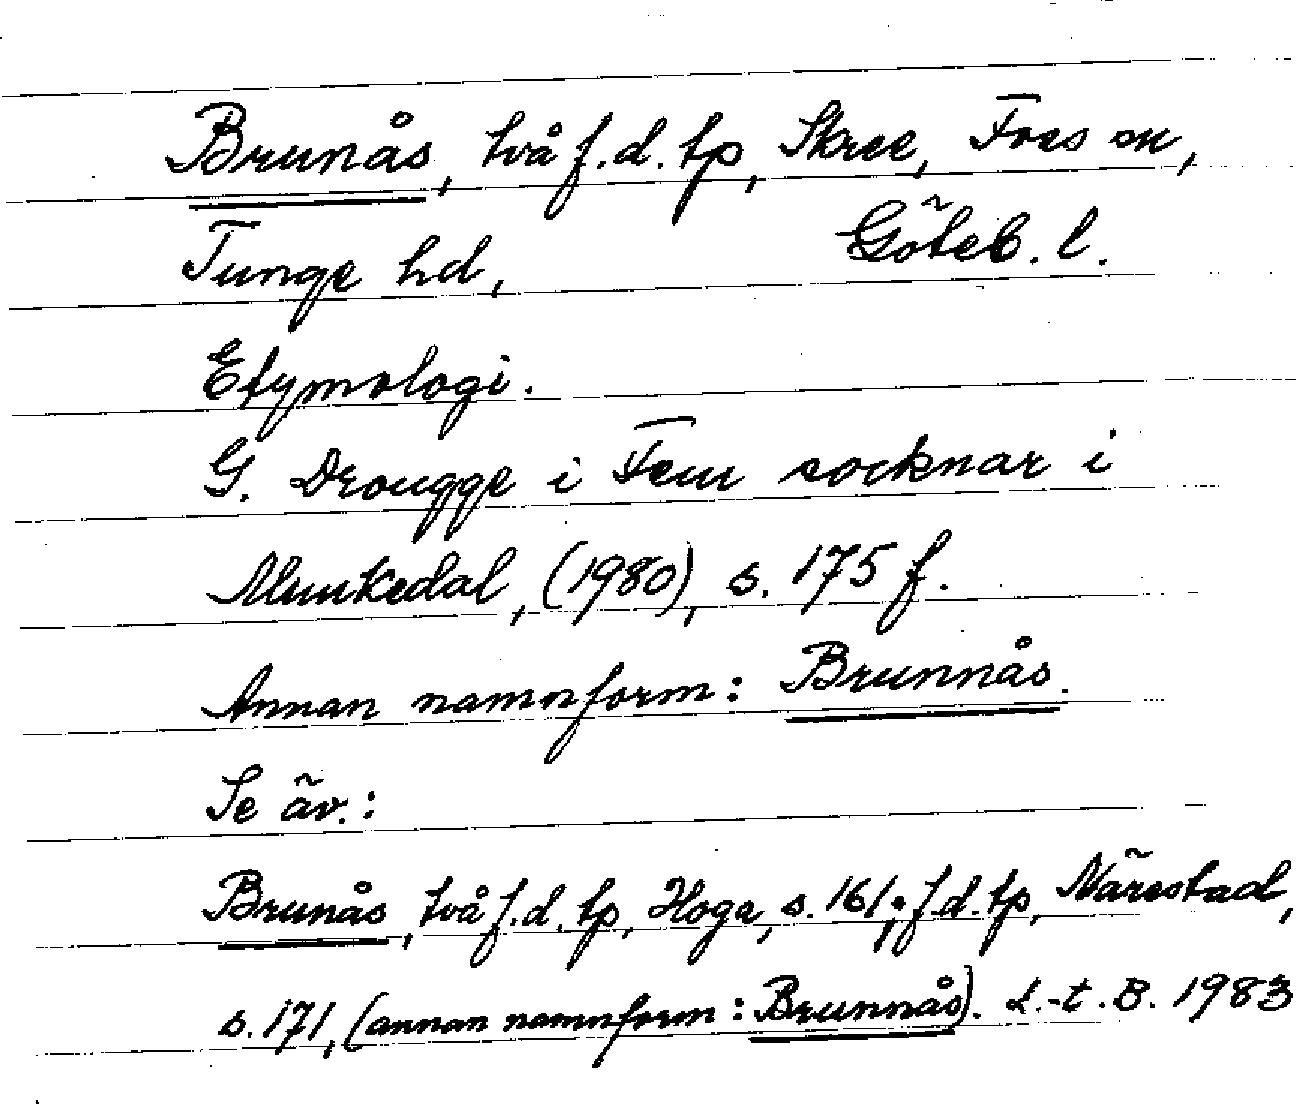 Brunås, två f.d. tp, Skree, Foss sn,
Tunge hd, Göteb. l.
Etymologi.
G. Drougge i Fem socknar i
Munkedal, (1980), s. 175 f.
Annan namnform: Brunnås.
Se äv.:
Brunås, två f.d. tp, Hoge, s. 161; f.d. tp, Närestad,
s. 171, (annan namnform: Brunnås). L.-t. B. 1983